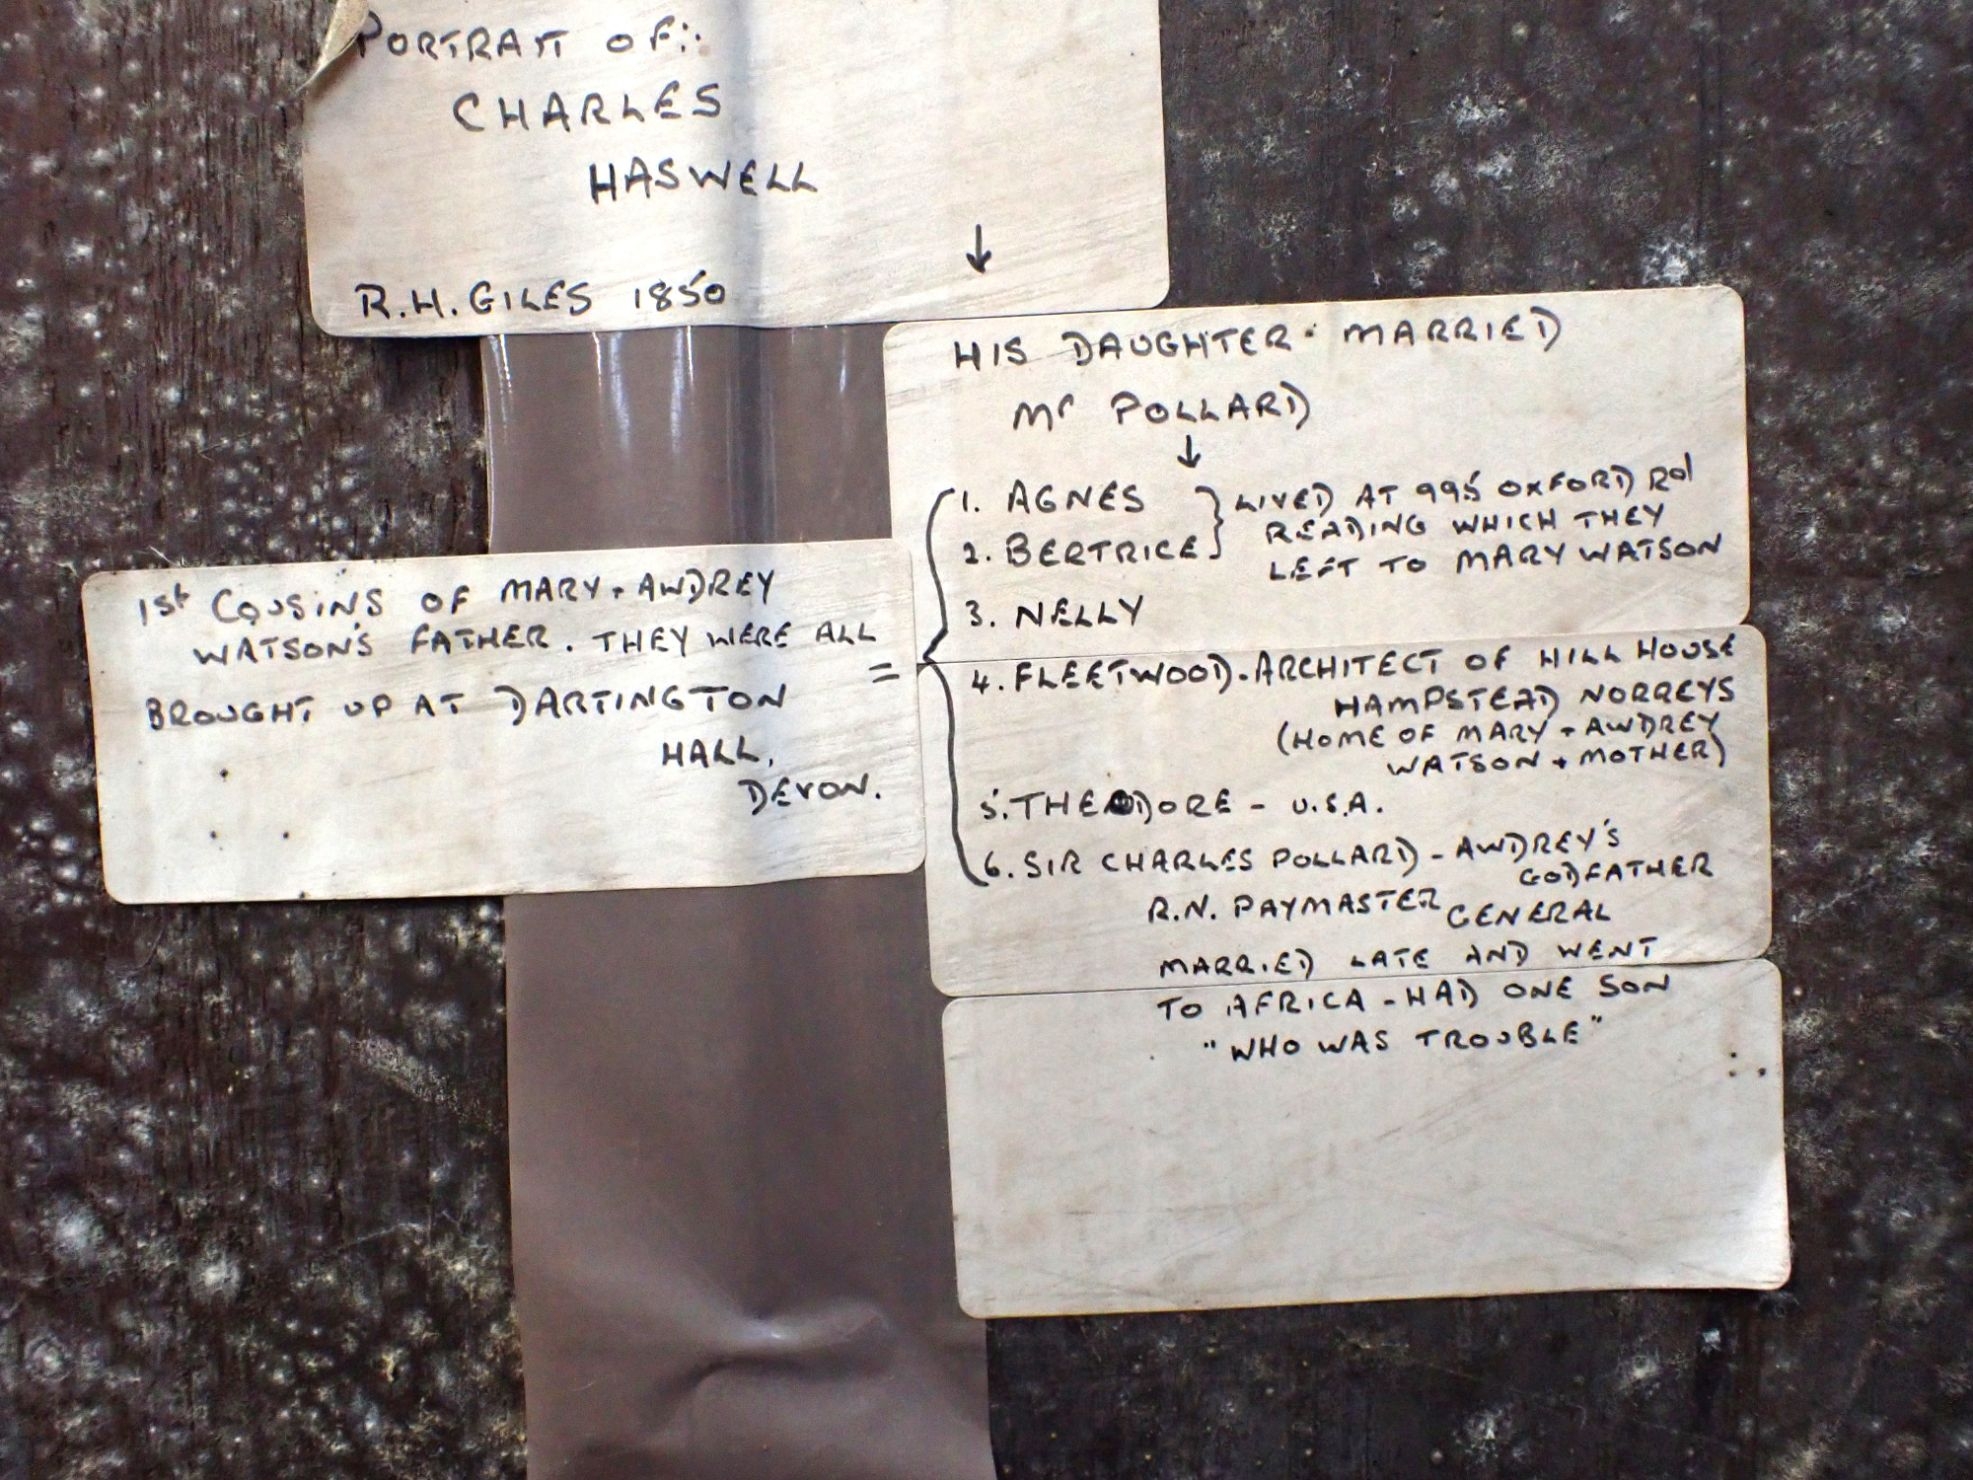 PORTRAIT OF:.
CHARLES
HASWELL
↓
R.H. GILES 1850
HIS DAUGHTER MARRIED
Mr POLLARD
↓
1. AGNES } LIVED AT 995 OXFORD Rd
2. BERTRICE } READING WHICH THEY
LEFT TO MARY WATSON
3. NELLY
4. FLEETWOOD - ARCHITECT OF HILL HOUSE
HAMPSTEAD NORREYS
(HOME OF MARY + AWDREY
WATSON + MOTHER)
5. THEODORE - U.S.A.
6. SIR CHARLES POLLARD - AWDREY'S
GODFATHER
R.N. PAYMASTER GENERAL
MARRIED LATE AND WENT
TO AFRICA - HAD ONE SON
"WHO WAS TROUBLE"
1st COUSINS OF MARY + AWDREY
WATSON'S FATHER. THEY WERE ALL =
BROUGHT UP AT DARTINGTON
HALL,
DEVON.